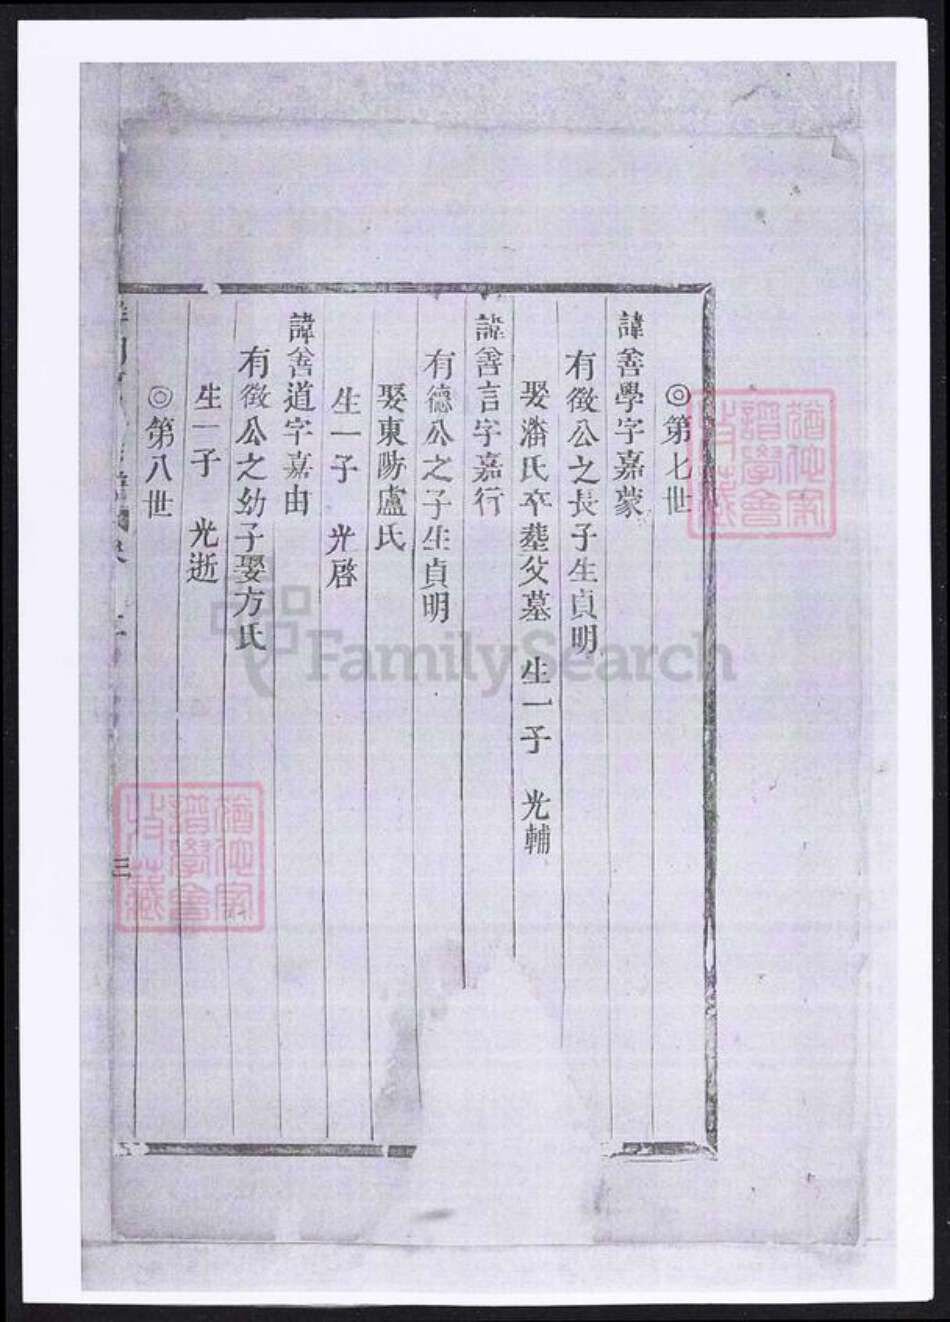 ◎第七世
諱善學字嘉蒙
有徵公之長子生貞明
娶潘氏卒塟父墓 生一子 光輔
諱善言字嘉行
有德公之子生貞明
娶東陟盧氏
生一子 光啓
諱善道字嘉由
有徵公之幼子娶方氏
生一子 光逝
◎第八世
三
FamilySearch